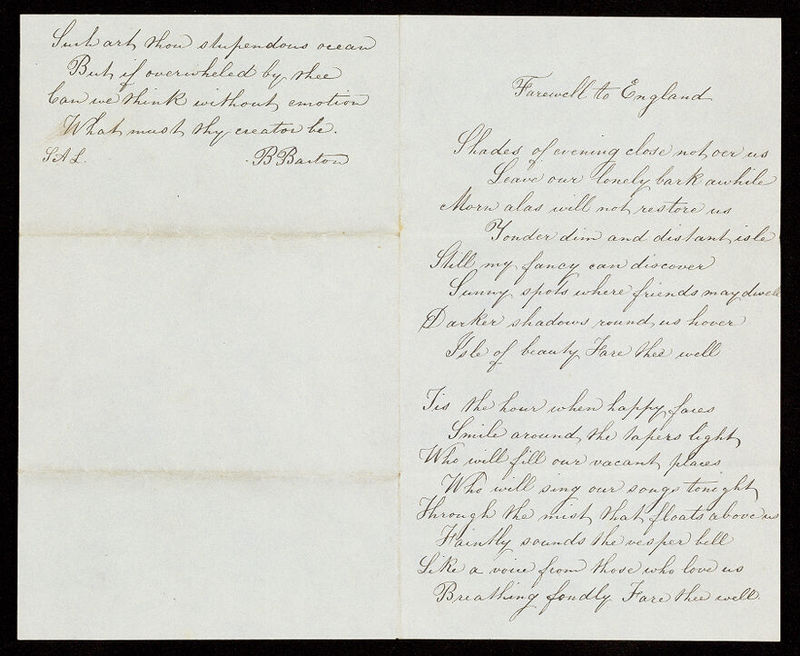 Such art thou stupendous ocean
But if overwheled by thee
Can we think without emotion
What must thy creator be.
S A L. B Barton
Farewell to England
Shades of evening close not oer us
Leave our lonely bark awhile
Morn alas will not restore us
Yonder dim and distant isle
Still my fancy can discover
Sunny spots where friends may dwell
Darker shadows round us hover
Isle of beauty Fare thee well
Tis the hour when happy faces
Smile around the tapers light
Who will fill our vacant places
Who will sing our songs tonight
Through the mist that floats above us
Faintly sounds the vesper bell
Like a voice from those who love us
Breathing fondly Fare thee well.